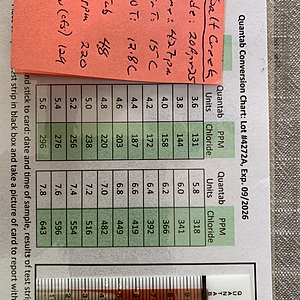 Salt Creek
ppm
15°C
12.8C
4.8
ppm 220
(cfs) 129
Quantab Conversion Chart: Lot #4272A, Exp. 09/2026
Quantab Units PPM Chloride Quantab Units PPM Chloride
3.6 131 5.8 318
3.8 144 6.0 341
4.0 158 6.2 366
4.2 172 6.4 392
4.4 187 6.6 419
4.6 203 6.8 449
4.8 220 7.0 482
5.0 238 7.2 516
5.2 256 7.4 554
5.4 276 7.6 596
5.6 296 7.8 643
and stick to card: date and time of sample, results of test
strip in black box and take a picture of card to report with